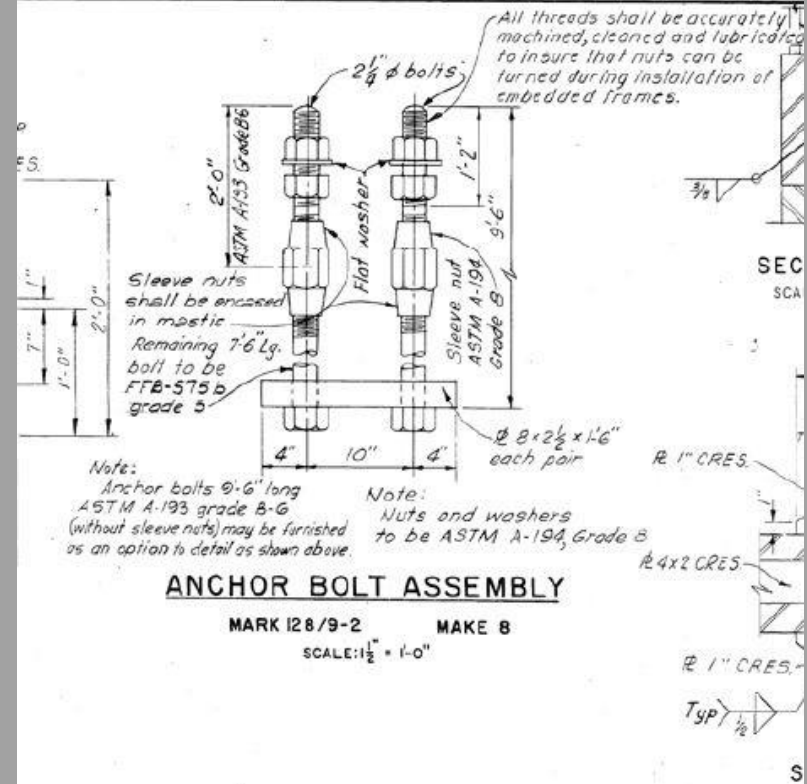 All threads shall be accurately
machined, cleaned and lubricated
to insure that nuts can be
turned during installation of
embedded frames.
2 1/4" ϕ bolts
2'-0"
ASTM A-193 Grade B6
Flat washer
1'-2"
9'-6"
Sleeve nut
ASTM A-194
Grade 8
Sleeve nuts
shall be encased
in mastic
Remaining 7'-6" Lg.
bolt to be
FFB-575b
grade 5
4"
10"
4"
℄ 8 x 2 1/2 x 1'-6"
each pair
Note:
Anchor bolts 9'-6" long
ASTM A-193 grade B-6
(without sleeve nuts) may be furnished
as an option to detail as shown above.
Note:
Nuts and washers
to be ASTM A-194, Grade 8
ANCHOR BOLT ASSEMBLY
MARK 128/9-2 MAKE 8
SCALE: 1 1/2" = 1'-0"
ES.
1"
7"
1'-0"
2'-0"
3/8
SEC
SCA
℄ 1" CRES.
1"
℄ 4x2 CRES.
℄ 1" CRES.
Typ
1/2
S